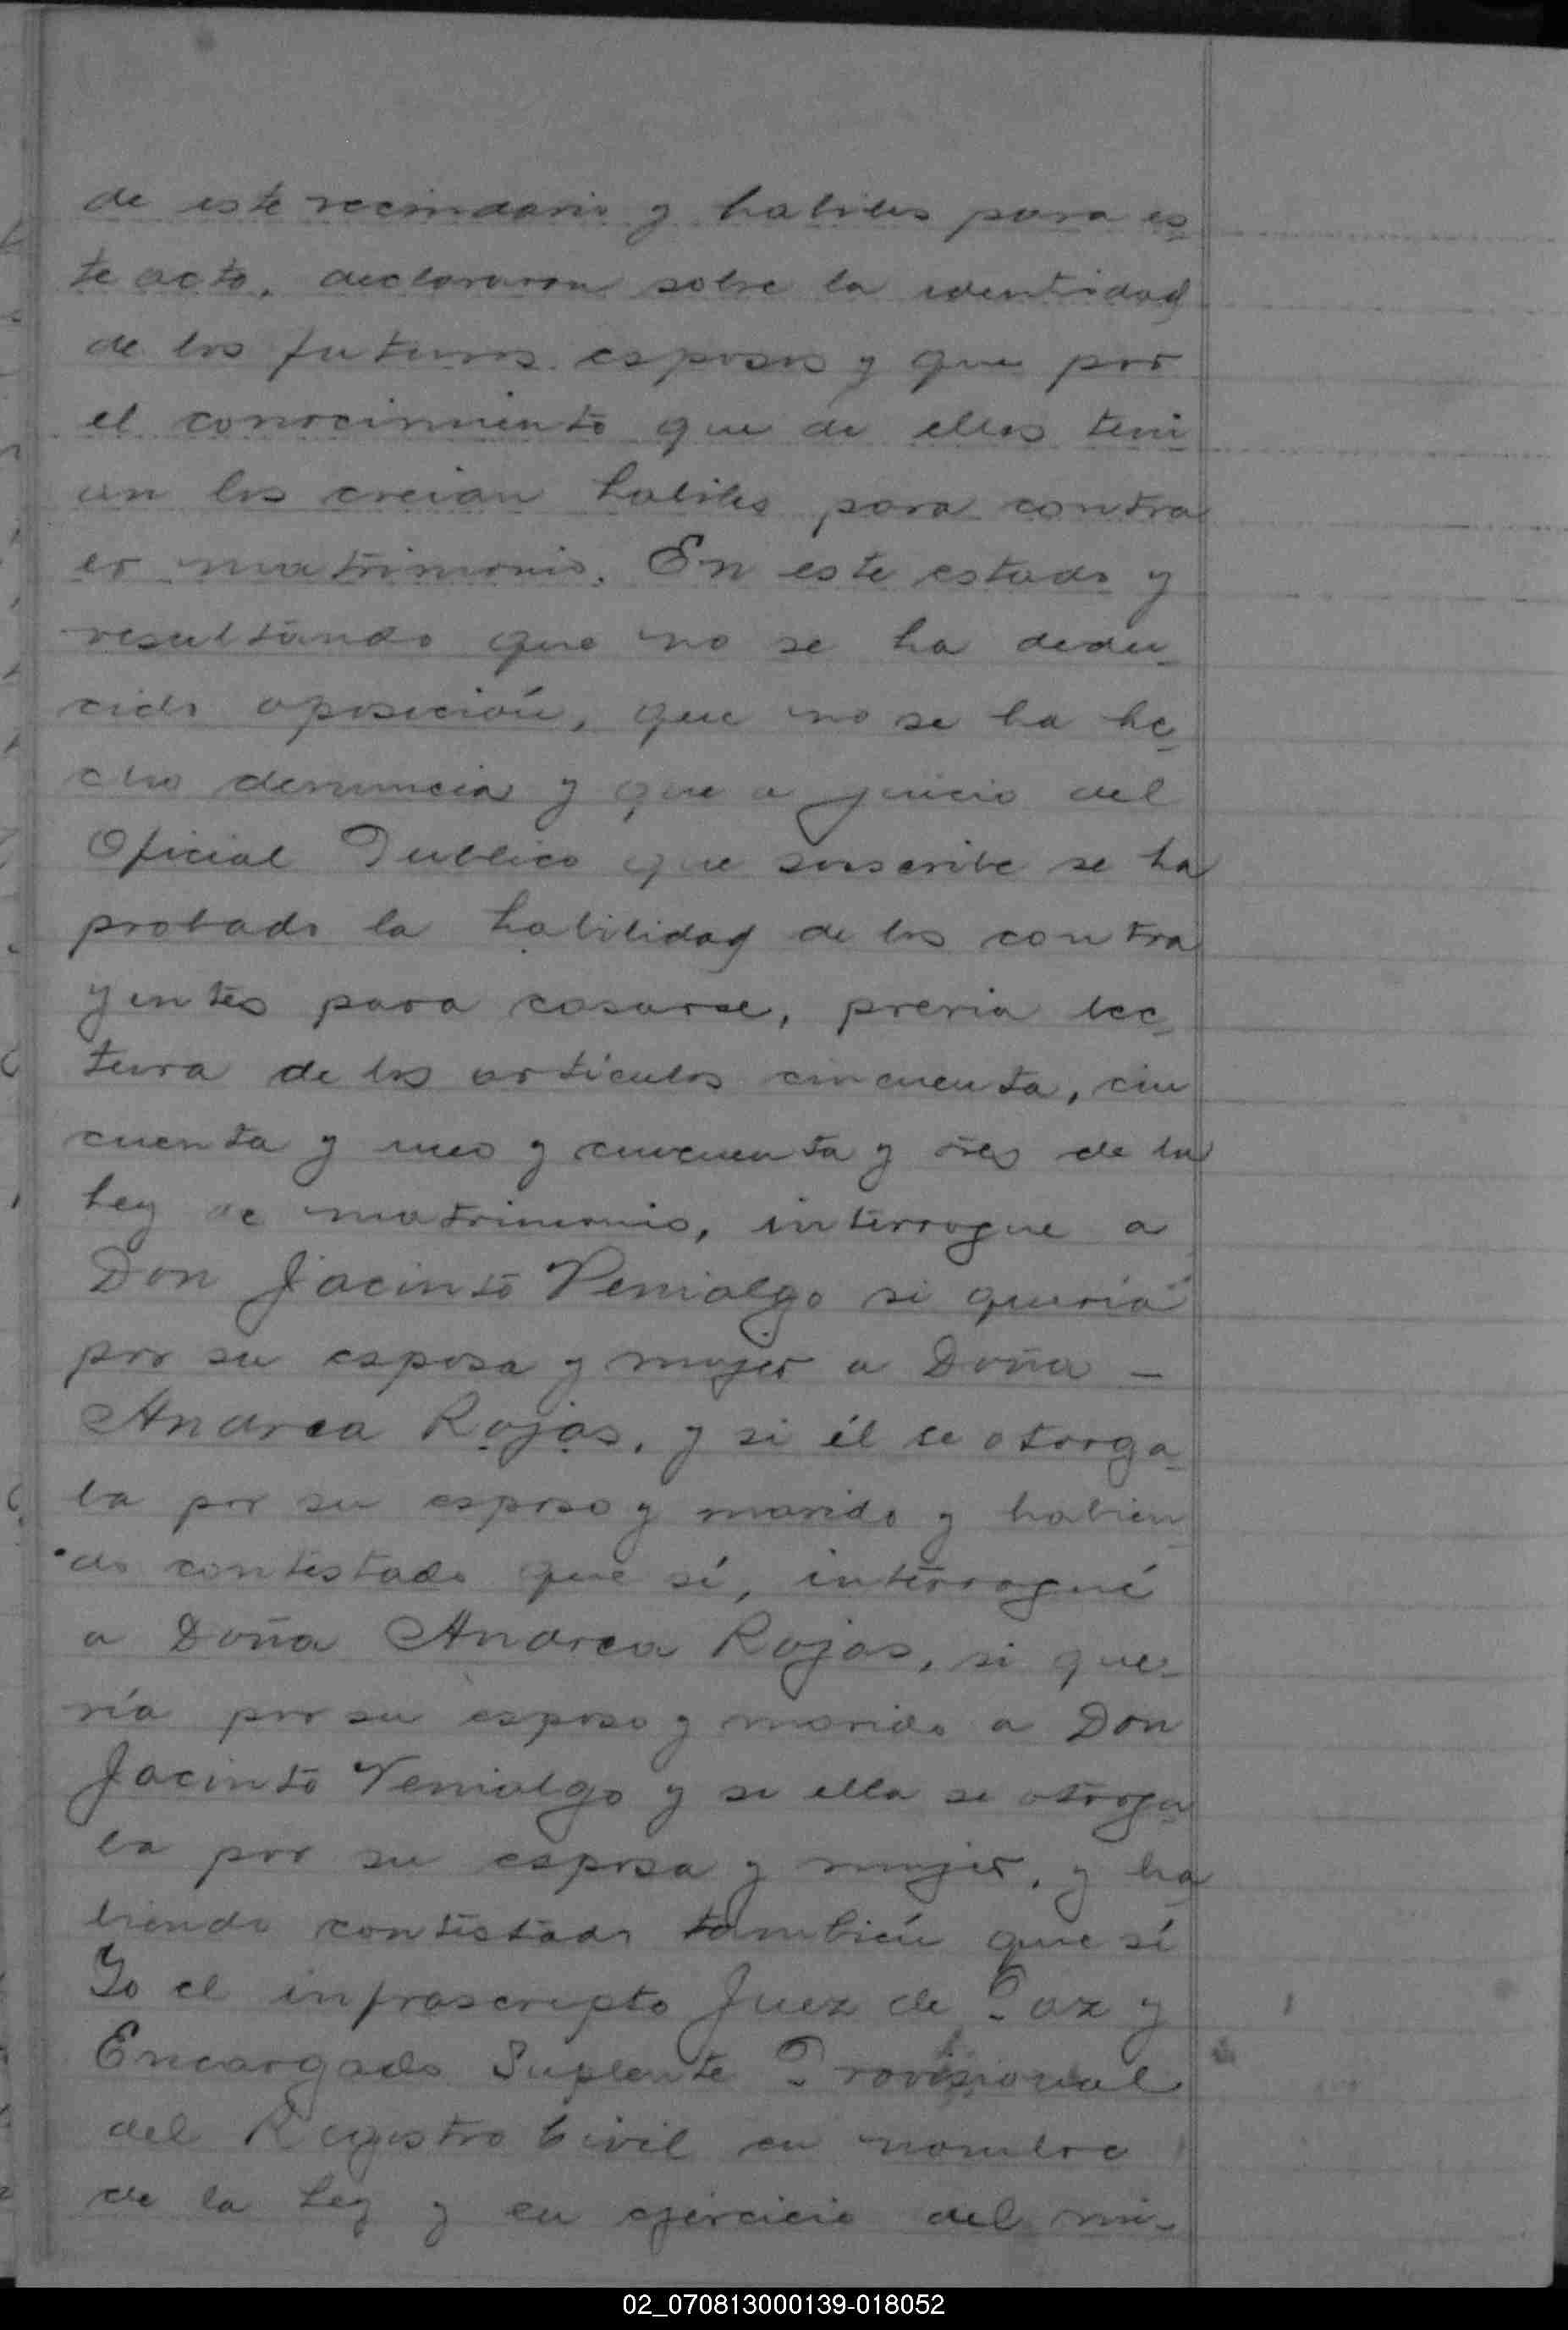 de este vecindario y habiles para es
te acto, declararon sobre la identidad
de los futuros esposos y que por
el conocimiento que de ellos teni
an los creian habiles para contra
er matrimonio. En este estado y
resultando que no se ha dedu-
cido oposición, que no se ha he-
cho denuncia y que a juicio del
Oficial Publico que suscribe se ha
probado la habilidad de los contra
yentes para casarse, previa lec-
tura de los artículos cincuenta, cin
cuenta y uno y cincuenta y tres de la
Ley de matrimonio, interrogue a
Don Jacinto Venialgo si quería
por su esposa y mujer a Doña -
Andrea Rojas, y si él se otorga-
ba por su esposo y marido y habien-
do contestado que sí, interrogué
a Doña Andrea Rojas, si que-
ría por su esposo y marido a Don
Jacinto Venialgo y si ella se otorga-
ba por su esposa y mujer, y ha
biendo contestado también que sí
Yo el infrascripto Juez de Paz y
Encargado Suplente Provisional
del Registro Civil en nombre
de la Ley y en ejercicio del mi-
02_070813000139-018052